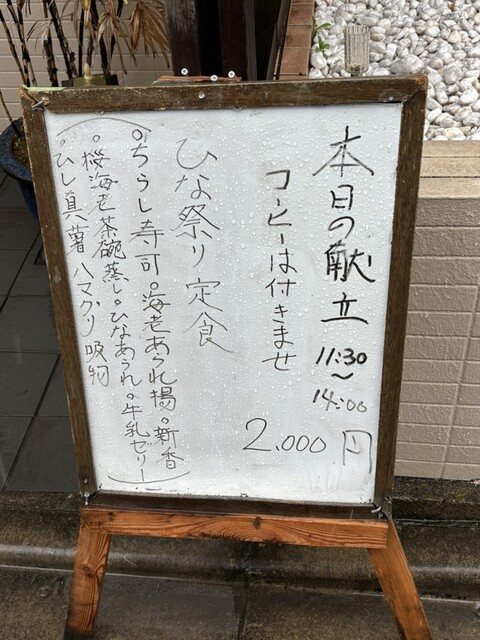 本日の献立
11:30
〜
14:00
コーヒーは付きませ
2.000円
ひな祭り定食
(。ちらし寿司。海老あられ揚。新香
。桜海老茶碗蒸し。ひなあられ。牛乳ゼリー
。ひし真薯ハマグリ吸物)